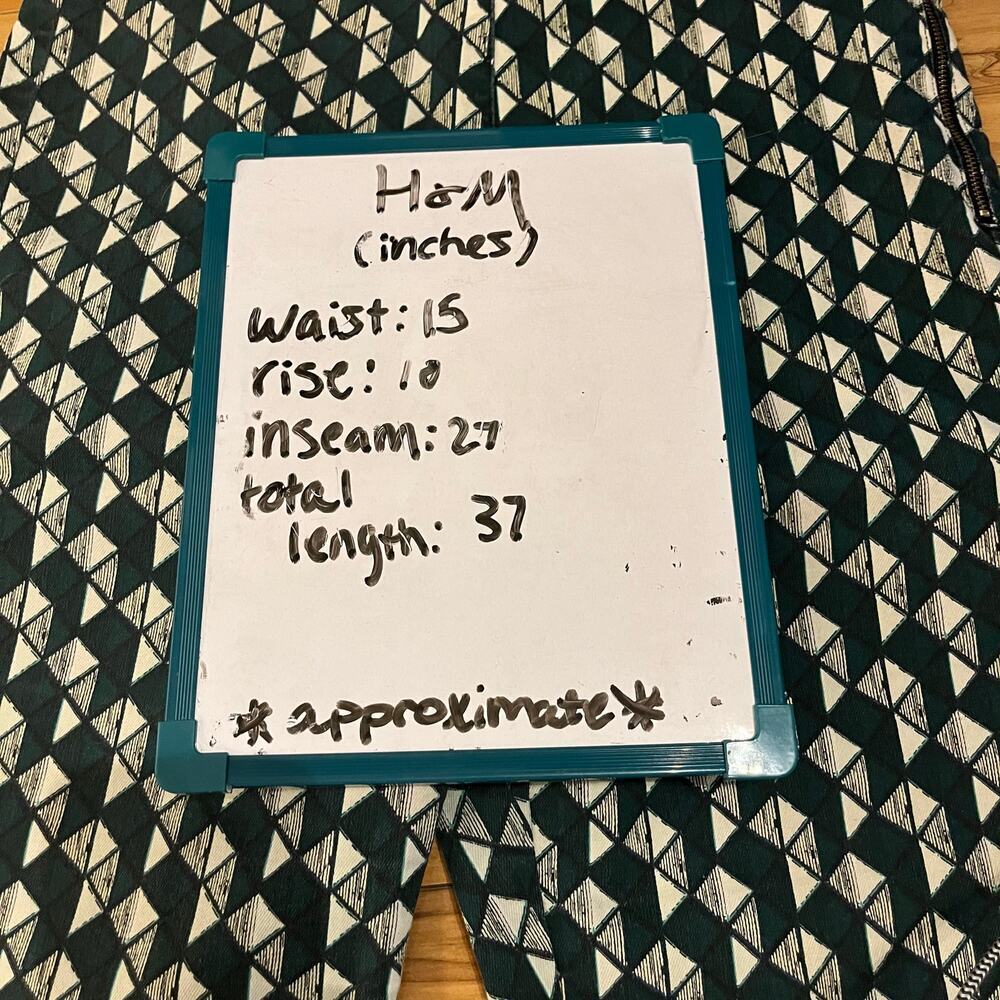 H&M
(inches)
waist: 15
rise: 10
inseam: 27
total
length: 37
* approximate *